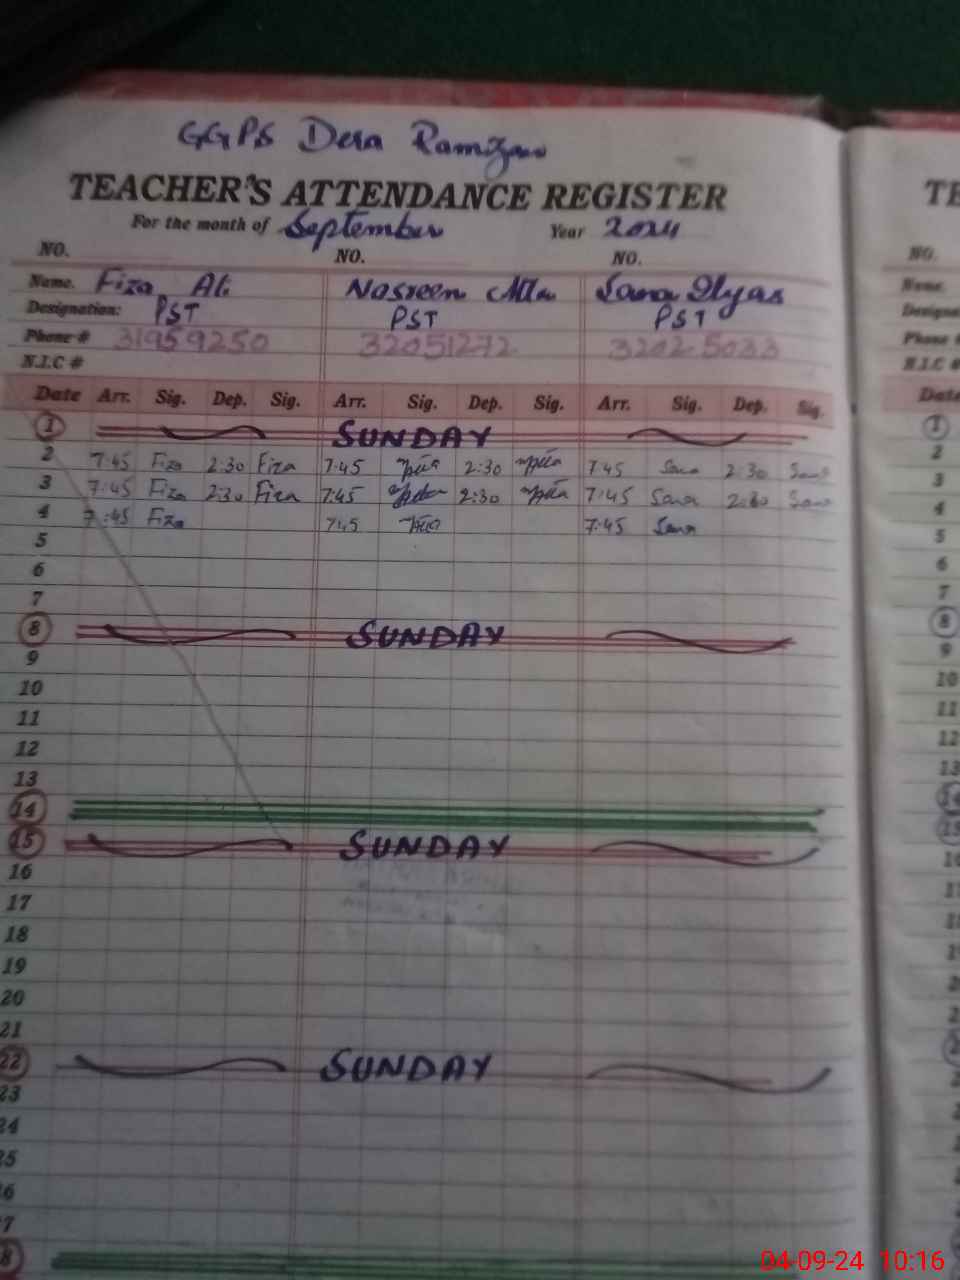 GGPS Dera Ramzan
TEACHER'S ATTENDANCE REGISTER TE
For the month of September Year 2024
NO. NO. NO. NO.
Name. Fiza Ali Nasreen Sana Ilyas Name.
Designation: PST PST PST
Phone # 31959250 32051272 32025033 Phone #
N.I.C # N.I.C #
Date Arr. Sig. Dep. Sig. Arr. Sig. Dep. Sig. Arr. Sig. Dep. Sig. Date
1 SUNDAY 1
2 7:45 Fiza 2:30 Fiza 7:45 2:30 7:45 Sana 2:30 Sana 2
3 7:45 Fiza 2:30 Fiza 7:45 2:30 7:45 Sana 2:30 Sana 3
4 7:45 Fiza 7:45 7:45 Sana 4
5 5
6 6
7 7
8 SUNDAY 8
9 9
10 10
11 11
12 12
13 13
14
15 SUNDAY
16
17
18
19
20
21
22 SUNDAY
23
24
25
04-09-24 10:16